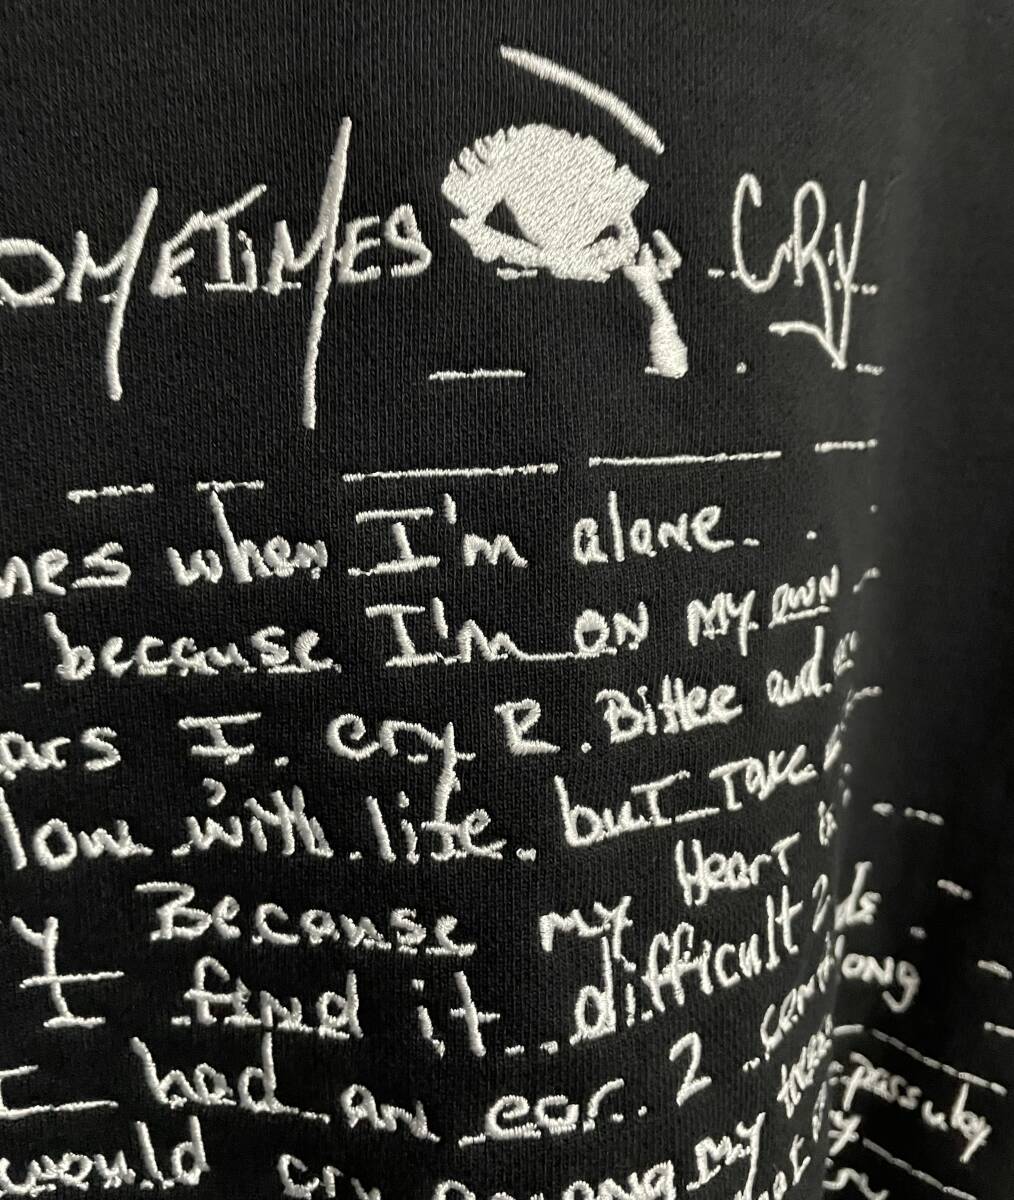 OMETIMES CRY
nes when I'm alone
because I'm on my own
ars I cry R Bitter and
low with life but Take
y Because my Heart is
I find it difficult 2
I had an ear 2
ong
pass by
would cry among my
not